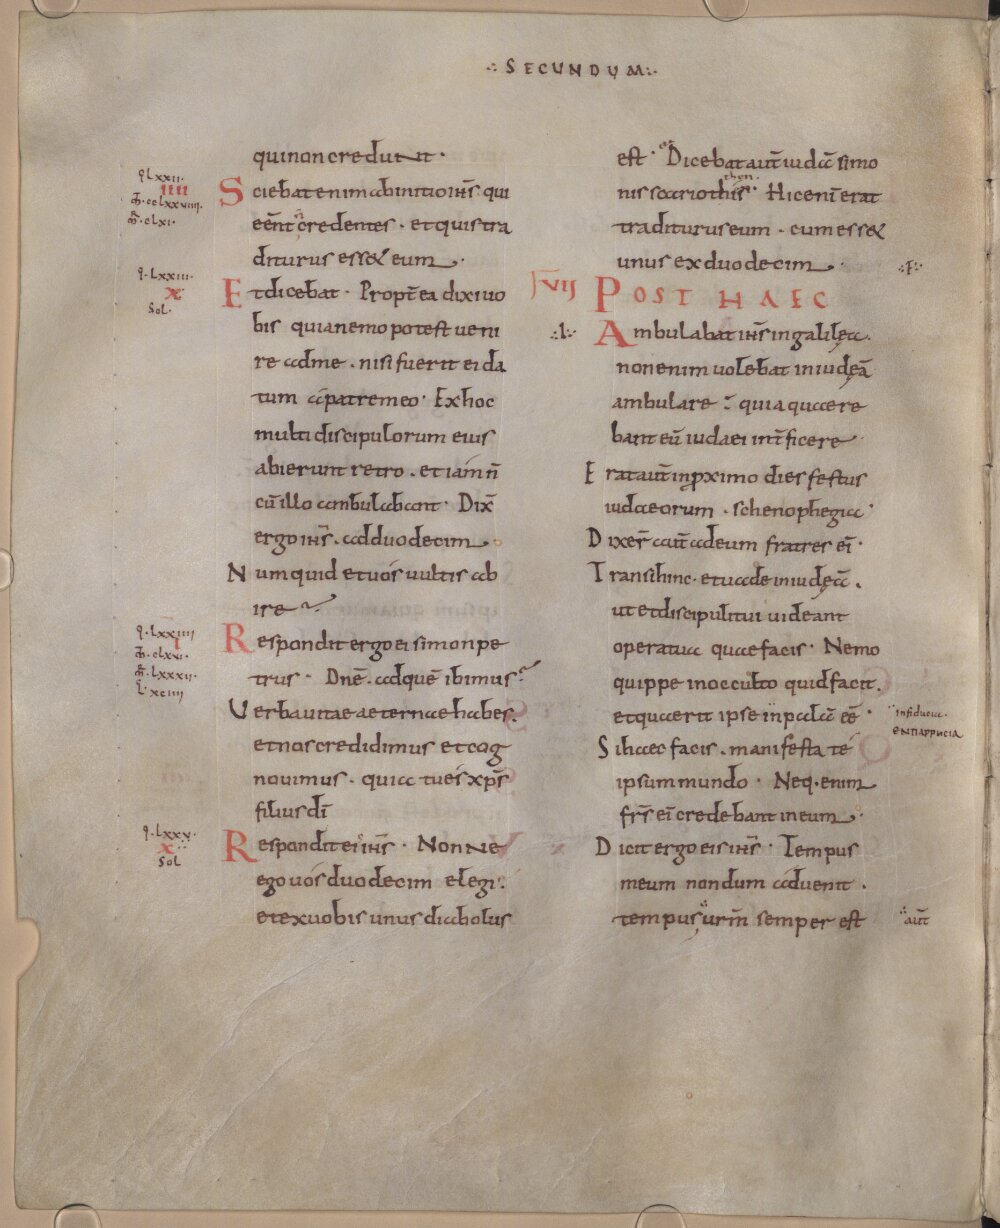 ·:· SECUNDUM ·:·
qui non credunt ·
q̄ Lxxii.
IIII
cclxxviiii.
clxi.
Sciebat enim ab initio ih̄s qui
eēnt credentes · et quis tra
diturus esset eum ·
q̄ · Lxxiii·
x
Sol·
Et dicebat · Propt̄ea dixi uo
bis quia nemo potest ueni
re ad me · nisi fuerit ei da
tum a patre meo · Ex hoc
multi discipulorum eius
abierunt retro · et iam n̄
cū illo ambulabant · Dix̄
ergo ih̄s · ad duodecim ·
Numquid et uos uultis ab
ire
q̄ · Lxxiiii
I
clxvi.
Lxxxii·
L · xciiii
Respondit ergo ei simon pe
trus · Dn̄e · ad quē ibimus
Uerba uitae aeternae habes ·
et nos credidimus et cog
nouimus · quia tu es xp̄s
filius dī
q̄ · Lxxv·
x
Sol
Respondit ei ih̄s · Nonne
ego uos duodecim elegi
et ex uobis unus diabolus
est · Dicebat aūt iudā simo
nis scariothis · Hic enī erat
then
traditurus eum · cum esset
unus ex duodecim ·
VII POST HAEC
Ambulabat ih̄s in galilęa ·
non enim uolebat in iudęā
ambulare · quia quaere
bant eū iudaei int̄ficere ·
Erat aūt in pximo dies festus
iudaeorum · schenophegia ·
Dixer̄ aūt ad eum fratres eī ·
Transi hinc · et uade in iudęā ·
ut et discipuli tui uideant
opera tua quae facis · Nemo
quippe in occulto quid facit ·
et quaerit ipse in palā eē ·
in fiducia ·
ΕΝΠΑΡΡΗCΙΑ
Si haec facis · manifesta te
ipsum mundo · Neq · enim
fr̄s eī credebant in eum ·
Dicit ergo eis ih̄s · Tempus
meum nondum aduenit ·
tempus ur̄m semper est
aūt